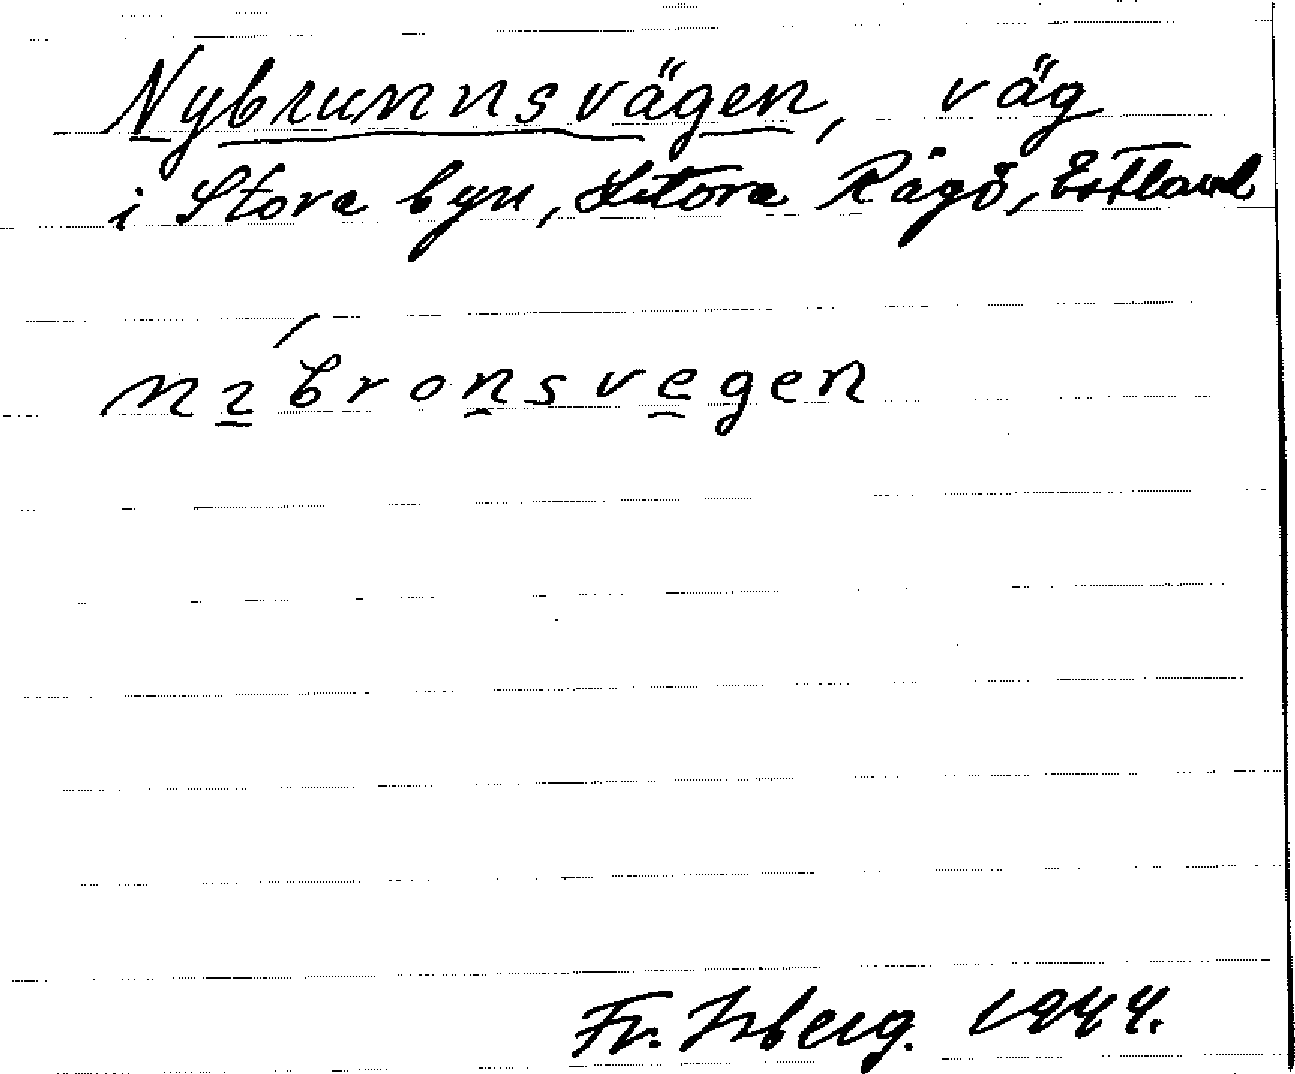 Nybrunnsvägen, väg
i Stora byn, Stora Rågö, Estland
nı́bronsvegen
Fr. Isberg. 1944.